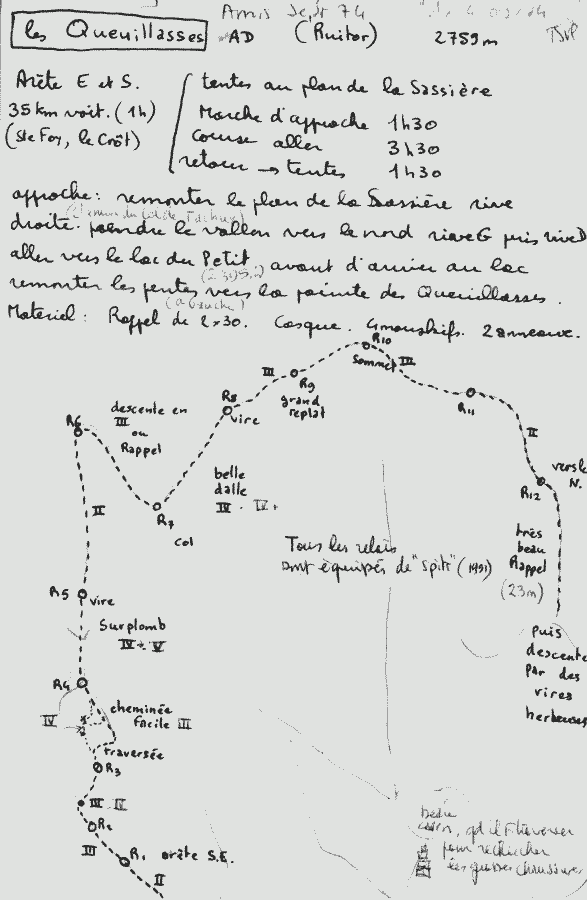 Amis Sept 74
les Queuillasses AD (Ruitor) 2759m TSVP
Arête E et S.
35 km voit. (1h)
(Ste Foy, le Crôt)
tentes au plan de la Sassière
Marche d'approche 1h30
Course aller 3h30
retour → tentes 1h30
approche: remonter le plan de la Sassière rive
droite. joindre le vallon vers le nord rive G puis rive D
aller vers le lac du Petit, avant d'arriver au lac
remonter les pentes vers la pointe des Queuillasses.
(à gauche)
Matériel: Rappel de 2×30. Casque. 4 mouskifs. 2 anneaux.
R10
Sommet III
III
R9
grand
replat
R11
R8
vire
descente en
III
ou
Rappel
R6
II
II
vers le
N.
R12
belle
dalle
IV - IV+
R7
Col
Tous les relais
sont équipés de "Spits" (1991)
très
beau
Rappel
(23m)
R5 vire
Surplomb
IV+ V
puis
descente
par des
vires
herbeuses
R4
cheminée
facile III
IV
traversée
R3
III IV
R2
III
R1 arête S.E.
II
qd il f. traverser
pour rechercher
les grosses chaussures